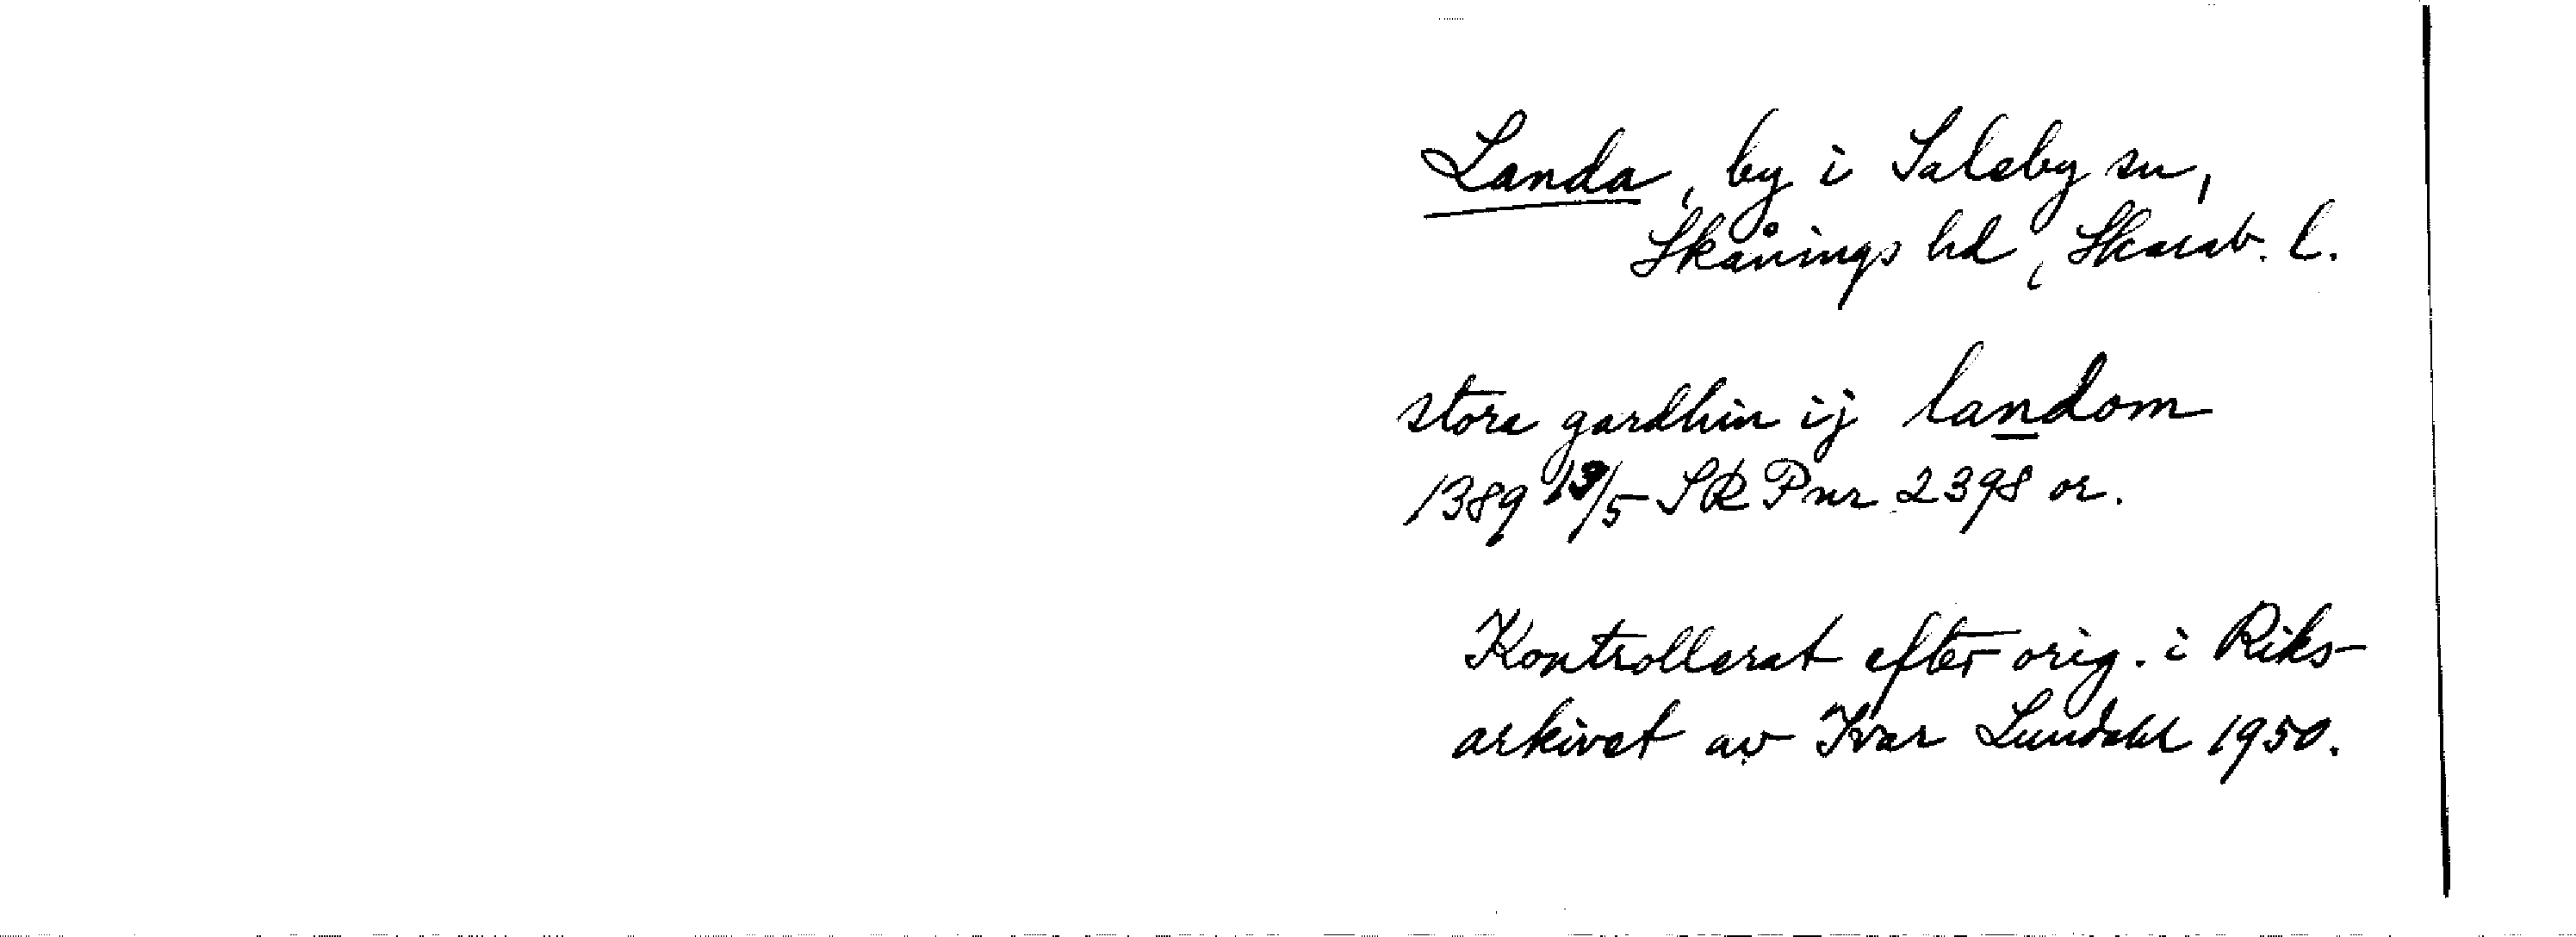 Landa, by i Saleby sn,
Skånings hd, Skarab. l.
stora gardhin ij landom
1389 13/5 SRP nr 2398 or.
Kontrollerat efter orig. i Riks-
arkivet av Ivar Lundahl 1950.